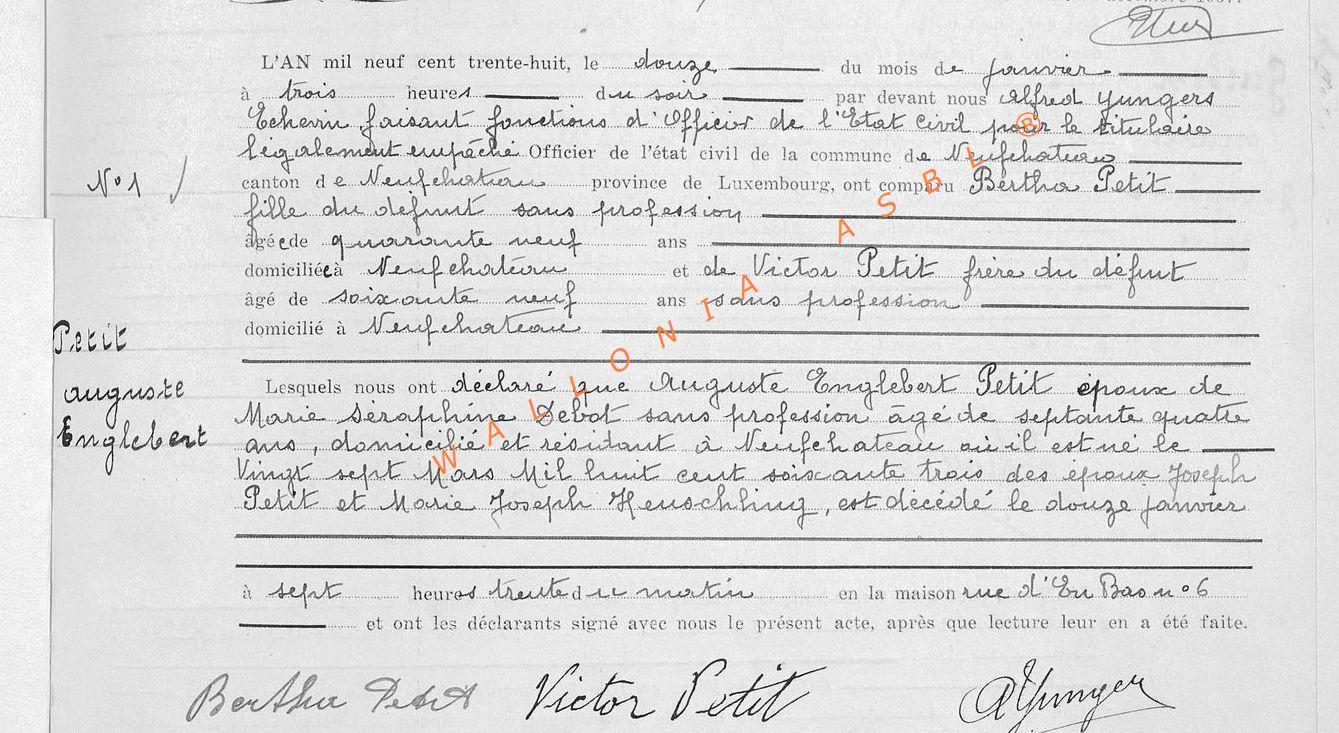 L'AN mil neuf cent trente-huit, le douze du mois de janvier
à trois heures du soir par devant nous Alfred Yungers
Echevin faisant fonctions d'Officier de l'Etat Civil pour le titulaire
légalement empêché Officier de l'état civil de la commune de Neufchateau
N°1
canton de Neufchateau province de Luxembourg, ont comparu Bertha Petit
fille du défunt sans profession
âgée de quarante neuf ans
domiciliée à Neufchateau et de Victor Petit frère du défunt
âgé de soixante neuf ans sans profession
domicilié à Neufchateau
Petit
Auguste
Englebert
Lesquels nous ont déclaré que Auguste Englebert Petit époux de
Marie Séraphine Debot sans profession âgé de septante quatre
ans, domicilié et résidant à Neufchateau où il est né le
Vingt sept Mars Mil huit cent soixante trois des époux Joseph
Petit et Marie Joseph Heuschling, est décédé le douze janvier
à sept heures trente du matin en la maison rue d'En Bas n°6
et ont les déclarants signé avec nous le présent acte, après que lecture leur en a été faite.
Bertha Petit Victor Petit A Yunger
WALLONIA ASBL ®